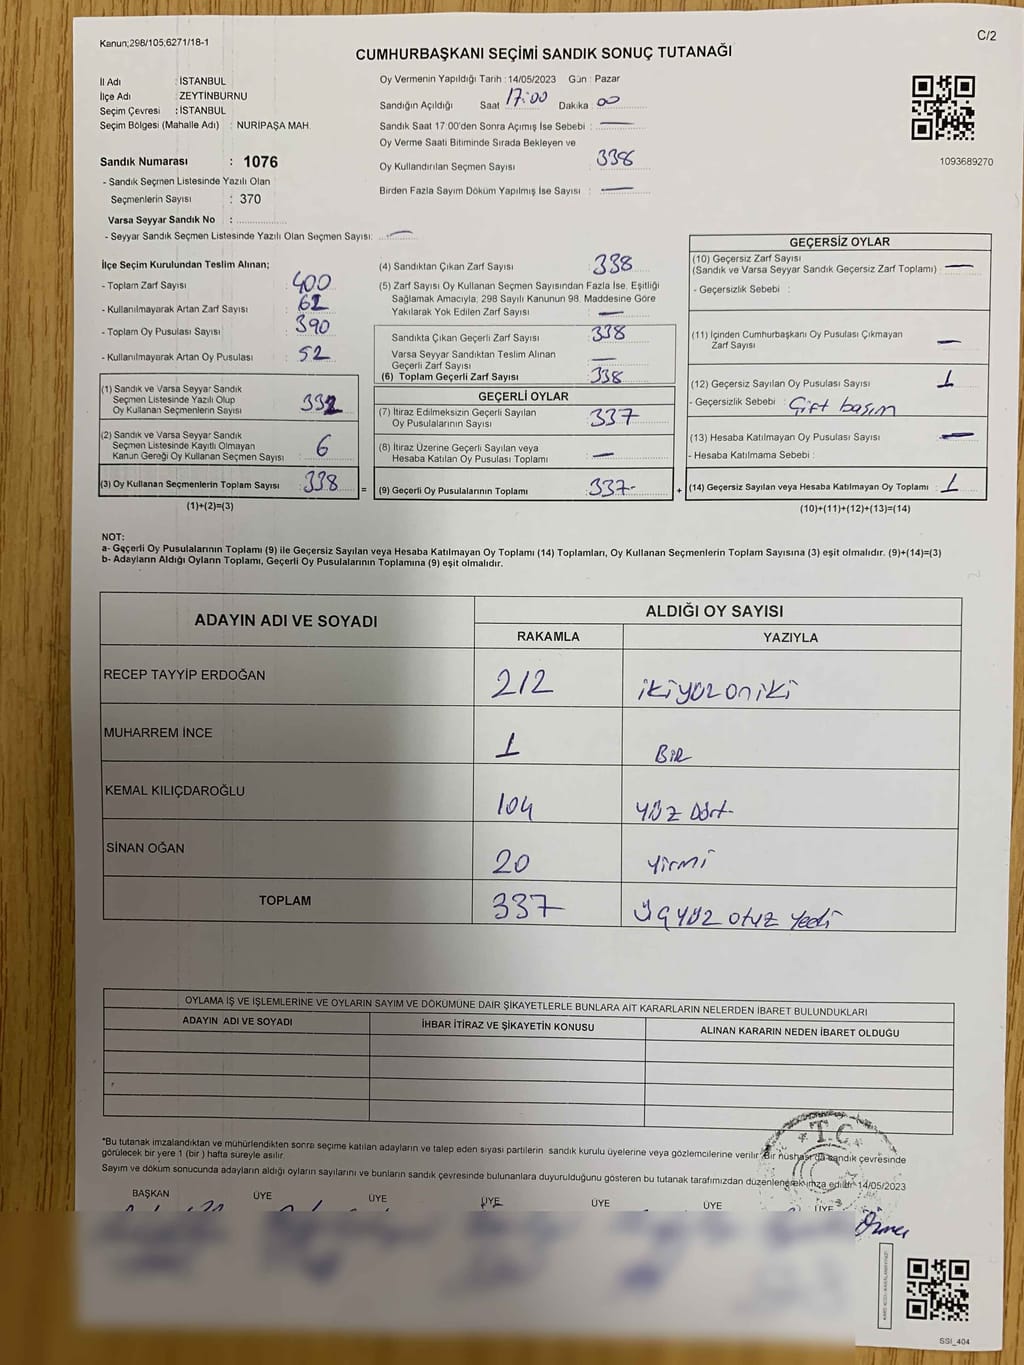 Kanun;298/105,6271/18-1
C/2
CUMHURBAŞKANI SEÇİMİ SANDIK SONUÇ TUTANAĞI
İl Adı : İSTANBUL
İlçe Adı : ZEYTİNBURNU
Seçim Çevresi : İSTANBUL
Seçim Bölgesi (Mahalle Adı) : NURİPAŞA MAH.
Sandık Numarası : 1076
- Sandık Seçmen Listesinde Yazılı Olan
Seçmenlerin Sayısı : 370
Varsa Seyyar Sandık No :
- Seyyar Sandık Seçmen Listesinde Yazılı Olan Seçmen Sayısı: —
Oy Vermenin Yapıldığı Tarih : 14/05/2023 Gün : Pazar
Sandığın Açıldığı Saat 17:00 Dakika 00
Sandık Saat 17:00'den Sonra Açımış İse Sebebi : —
Oy Verme Saati Bitiminde Sırada Bekleyen ve
Oy Kullandırılan Seçmen Sayısı 338
Birden Fazla Sayım Döküm Yapılmış İse Sayısı : —
1093689270
İlçe Seçim Kurulundan Teslim Alınan;
- Toplam Zarf Sayısı : 400
- Kullanılmayarak Artan Zarf Sayısı : 62
- Toplam Oy Pusulası Sayısı : 390
- Kullanılmayarak Artan Oy Pusulası : 52
(1) Sandık ve Varsa Seyyar Sandık
Seçmen Listesinde Yazılı Olup
Oy Kullanan Seçmenlerin Sayısı : 332
(2) Sandık ve Varsa Seyyar Sandık
Seçmen Listesinde Kayıtlı Olmayan
Kanun Gereği Oy Kullanan Seçmen Sayısı : 6
(3) Oy Kullanan Seçmenlerin Toplam Sayısı : 338 =
(1)+(2)=(3)
(4) Sandıktan Çıkan Zarf Sayısı 338
(5) Zarf Sayısı Oy Kullanan Seçmen Sayısından Fazla İse, Eşitliği
Sağlamak Amacıyla, 298 Sayılı Kanunun 98. Maddesine Göre
Yakılarak Yok Edilen Zarf Sayısı : —
Sandıkta Çıkan Geçerli Zarf Sayısı : 338
Varsa Seyyar Sandıktan Teslim Alınan
Geçerli Zarf Sayısı : —
(6) Toplam Geçerli Zarf Sayısı : 338
GEÇERLİ OYLAR
(7) İtiraz Edilmeksizin Geçerli Sayılan
Oy Pusulalarının Sayısı : 337
(8) İtiraz Üzerine Geçerli Sayılan veya
Hesaba Katılan Oy Pusulası Toplamı : —
(9) Geçerli Oy Pusulalarının Toplamı : 337- +
GEÇERSİZ OYLAR
(10) Geçersiz Zarf Sayısı
(Sandık ve Varsa Seyyar Sandık Geçersiz Zarf Toplamı) : —
- Geçersizlik Sebebi :
(11) İçinden Cumhurbaşkanı Oy Pusulası Çıkmayan
Zarf Sayısı : —
(12) Geçersiz Sayılan Oy Pusulası Sayısı : 1
- Geçersizlik Sebebi : Çift basım
(13) Hesaba Katılmayan Oy Pusulası Sayısı : —
- Hesaba Katılmama Sebebi :
(14) Geçersiz Sayılan veya Hesaba Katılmayan Oy Toplamı : 1
(10)+(11)+(12)+(13)=(14)
NOT:
a- Geçerli Oy Pusulalarının Toplamı (9) ile Geçersiz Sayılan veya Hesaba Katılmayan Oy Toplamı (14) Toplamları, Oy Kullanan Seçmenlerin Toplam Sayısına (3) eşit olmalıdır. (9)+(14)=(3)
b- Adayların Aldığı Oyların Toplamı, Geçerli Oy Pusulalarının Toplamına (9) eşit olmalıdır.
ADAYIN ADI VE SOYADI
ALDIĞI OY SAYISI
RAKAMLA YAZIYLA
RECEP TAYYİP ERDOĞAN 212 ikiyüz oniki
MUHARREM İNCE 1 Bir
KEMAL KILIÇDAROĞLU 104 yüz Dört
SİNAN OĞAN 20 yirmi
TOPLAM 337 Üçyüz otuz yedi
OYLAMA İŞ VE İŞLEMLERİNE VE OYLARIN SAYIM VE DÖKÜMÜNE DAİR ŞİKAYETLERLE BUNLARA AİT KARARLARIN NELERDEN İBARET BULUNDUKLARI
ADAYIN ADI VE SOYADI İHBAR İTİRAZ VE ŞİKAYETİN KONUSU ALINAN KARARIN NEDEN İBARET OLDUĞU
T.C.
*Bu tutanak imzalandıktan ve mühürlendikten sonra seçime katılan adayların ve talep eden siyasi partilerin sandık kurulu üyelerine veya gözlemcilerine verilir. Bir nüshası da sandık çevresinde
görülecek bir yere 1 (bir) hafta süreyle asılır.
Sayım ve döküm sonucunda adayların aldığı oyların sayılarını ve bunların sandık çevresinde bulunanlara duyurulduğunu gösteren bu tutanak tarafımızdan düzenlenerek imza edildi. 14/05/2023
BAŞKAN ÜYE ÜYE ÜYE ÜYE ÜYE ÜYE
SSI_404